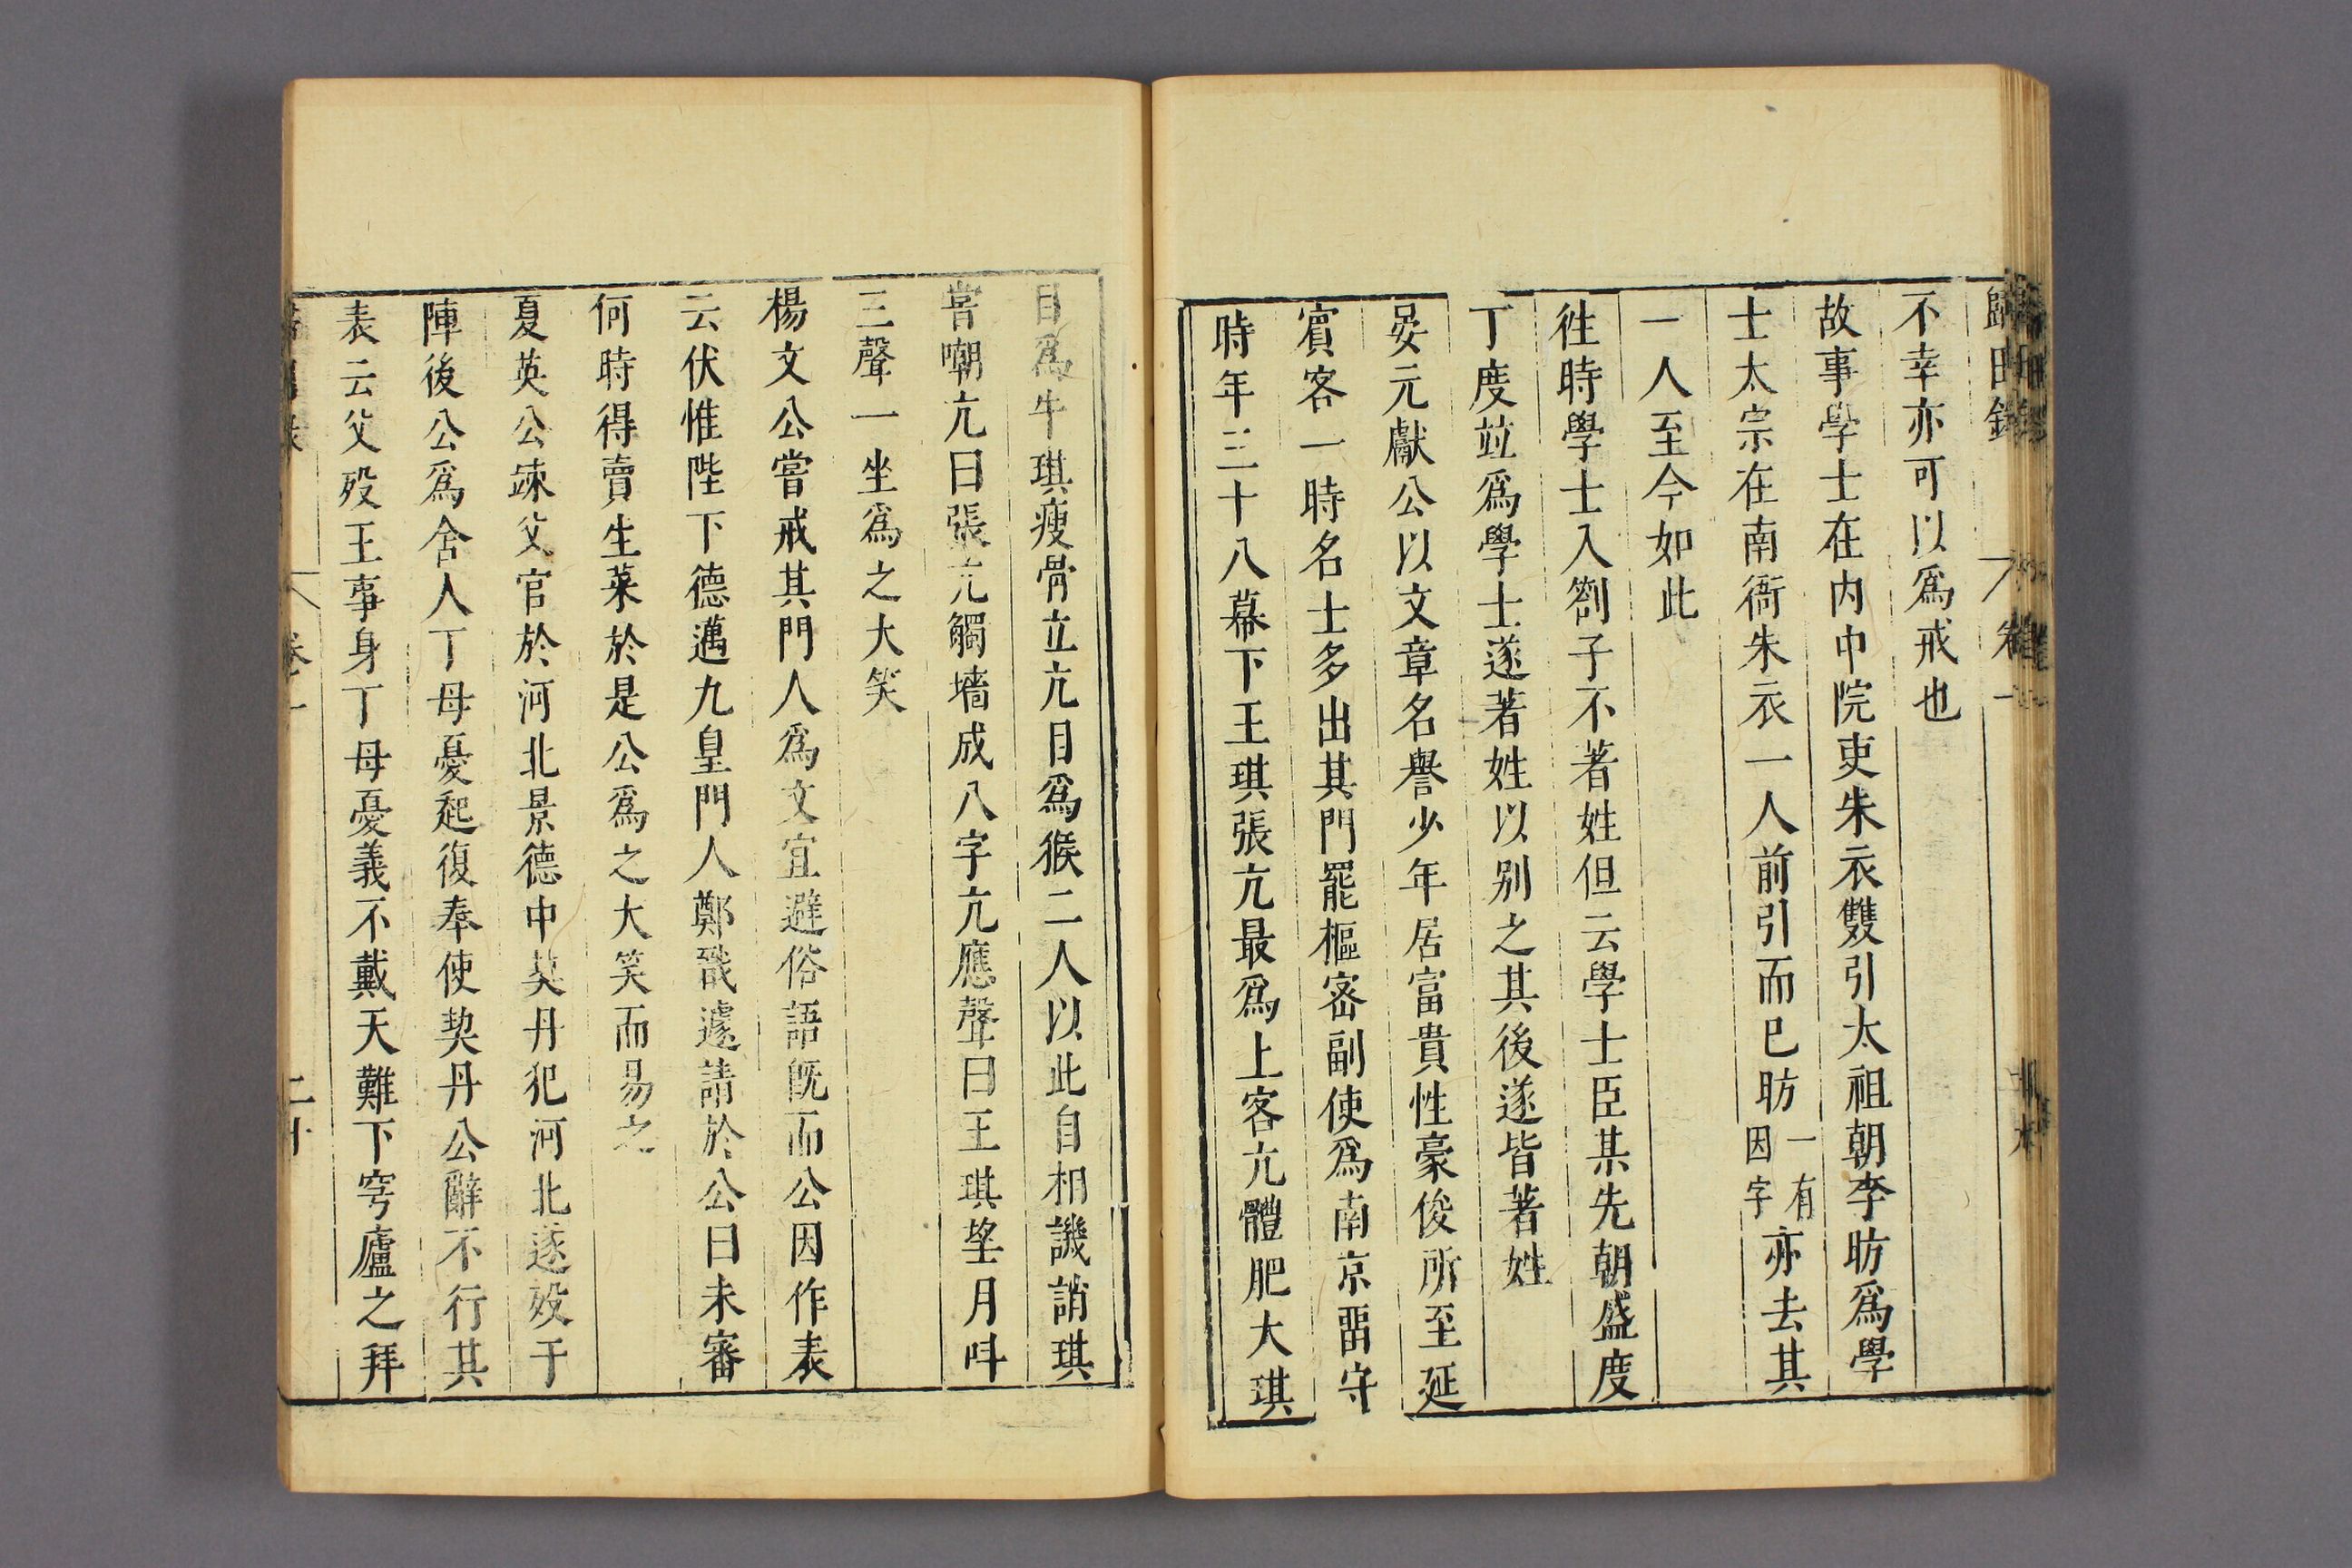 歸田錄 卷一
不幸亦可以爲戒也
故事學士在内中院吏朱衣雙引太祖朝李昉爲學
士太宗在南衙朱衣一人前引而已昉一有因字亦去其
一人至今如此
徃時學士入劄子不著姓但云學士臣某先朝盛度
丁度並爲學士遂著姓以別之其後遂皆著姓
晏元獻公以文章名譽少年居富貴性豪俊所至延
賓客一時名士多出其門罷樞密副使爲南京畱守
時年三十八幕下王琪張亢最爲上客亢體肥大琪
目爲牛琪瘦骨立亢目爲猴二人以此自相譏誚琪
嘗嘲亢曰張亢觸墻成八字亢應聲曰王琪望月呌
三聲一坐爲之大笑
楊文公嘗戒其門人爲文宜避俗語旣而公因作表
云伏惟陛下德邁九皇門人鄭戩遽請於公曰未審
何時得賣生菜於是公爲之大笑而易之
夏英公竦父官於河北景德中契丹犯河北遂歿于
陣後公爲舍人丁母憂起復奉使契丹公辭不行其
表云父歿王事身丁母憂義不戴天難下穹廬之拜
卷一
二十